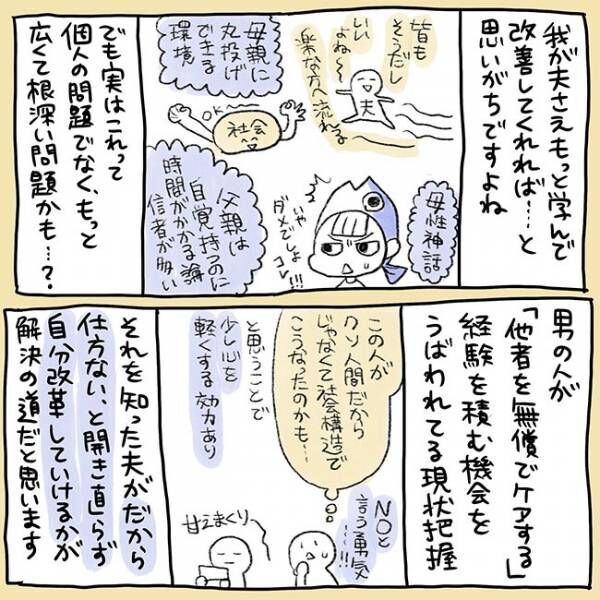 我が夫さえもっと学んで
改善してくれれば……と
思いがちですよね
皆も
そうだし
いい
よね〜〜
楽な方へ流れる
夫
母親に
丸投げ
できる
環境
OK〜
社会
母性神話
いや
ダメでしょ
コレ!!!
父親は
自覚持つのに
時間がかかる論
信者が多い
でも実はこれって
個人の問題でなく、もっと
広くて根深い問題かも…?
男の人が
「他者を無償でケアする」
経験を積む機会を
うばわれてる現状把握
この人が
クソ人間だから
じゃなくて社会構造で
こうなったのかも…
と思うことで
少し心を
軽くする効力あり
NOと
言う勇気
…!!!
甘えまくり
それを知った夫がだから
仕方ない、と開き直らず
自分改革していけるかが
解決の道だと思います